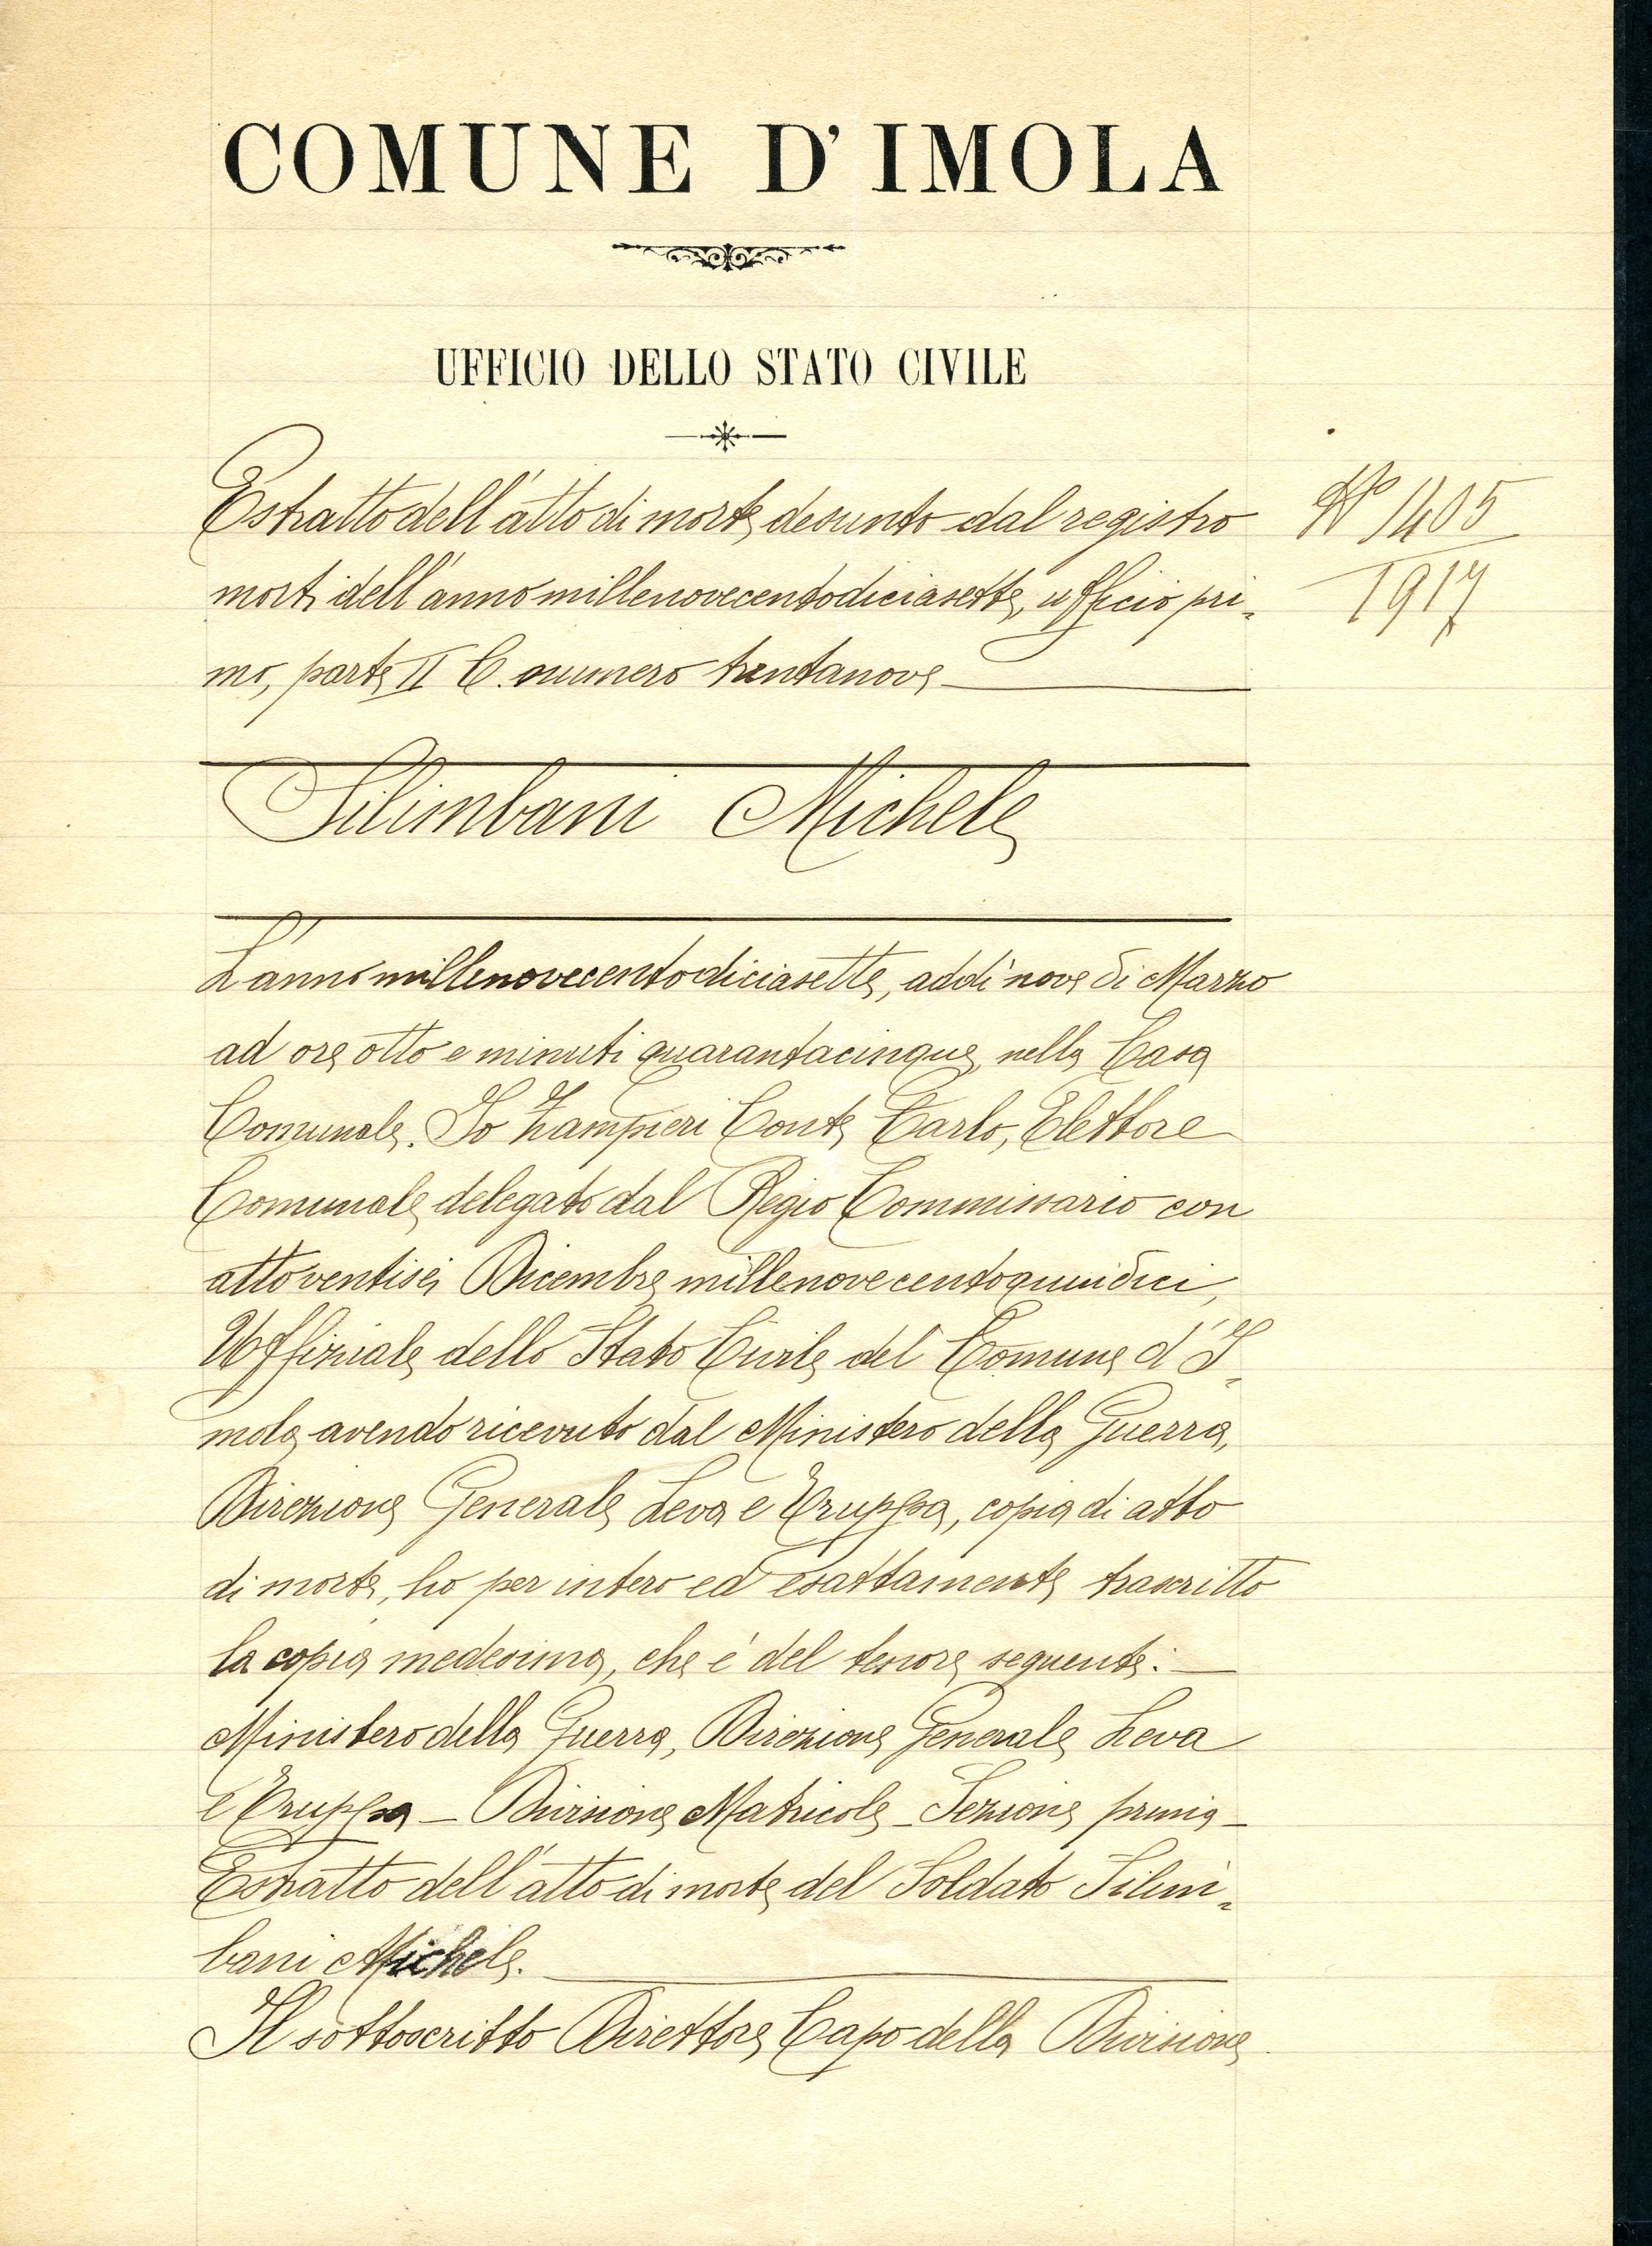 COMUNE D'IMOLA
UFFICIO DELLO STATO CIVILE
Estratto dell'atto di morte, desunto dal registro
morti dell'anno millenovecentodiciasette, ufficio pri=
mo, parte II C. numero trentanove
N° 1405
1917
Silimbani Michele
L'anno millenovecentodiciasette, addì nove di Marzo
ad ore otto e minuti quarantacinque, nella Casa
Comunale. Io Zampieri Conte Carlo, Elettore
Comunale delegato dal Regio Commissario con
atto ventisei Dicembre millenovecentoquindici,
Uffiziale dello Stato Civile del Comune d'I=
mola avendo ricevuto dal Ministero della Guerra,
Direzione Generale Leva e Truppa, copia di atto
di morte, ho per intero ed esattamente trascritto
la copia medesima, che è del tenore seguente: —
Ministero della Guerra, Direzione Generale Leva
e Truppa — Divisione Matricole — Sezione prima —
Estratto dell'atto di morte del Soldato Silim=
bani Michele.
Il sottoscritto Direttore Capo della Divisione